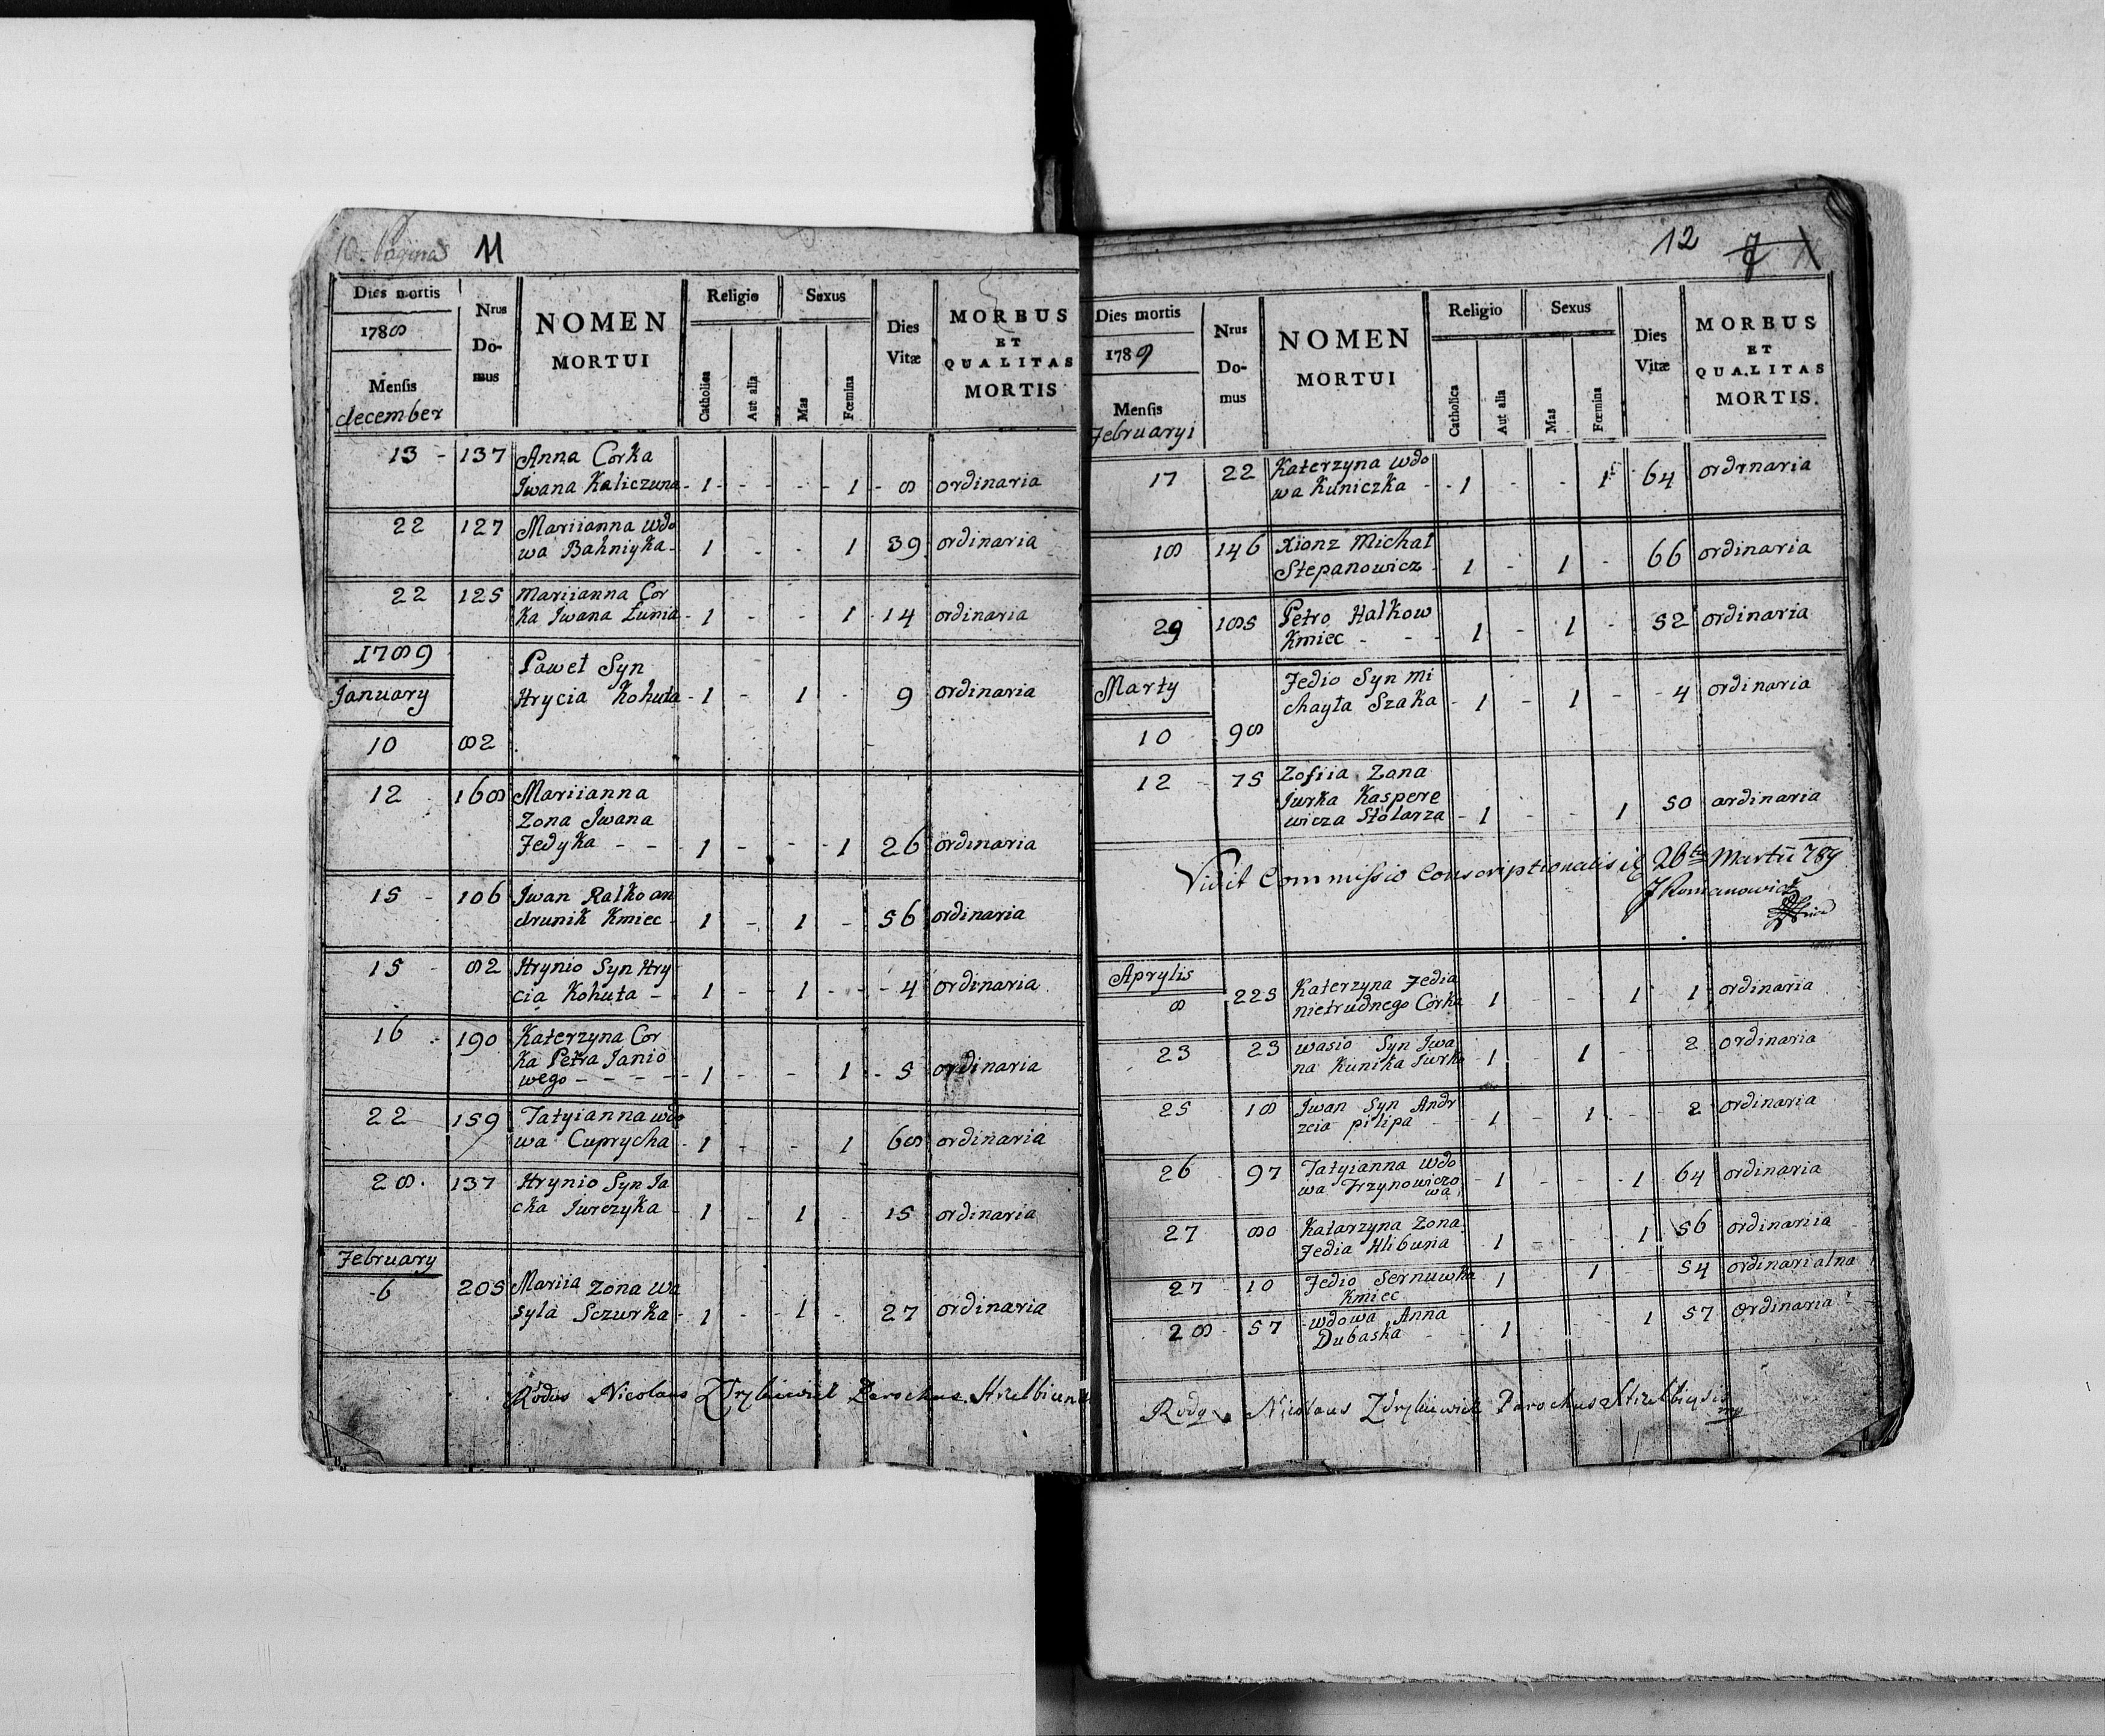 10 Pagina 11
Dies mortis
1788
Mensis
december
Nrus
Do-
mus
NOMEN
MORTUI
Religio
Catholica
Aut alia
Sexus
Mas
Fœmina
Dies
Vitæ
MORBUS
ET
QUALITAS
MORTIS
13 - 137 Anna Corka
Jwana Kaliczuna - 1 - - - - 1 - 8 ordinaria
22 127 Mariianna wdo
wa Bahniyka - 1 - - 1 39 ordinaria
22 125 Mariianna Cor
ka Jwana Łunia - 1 - - 1 14 ordinaria
1789
January
Paweł Syn
Hrycia Kohuta - 1 - 1 - 9 ordinaria
10 82
12 168 Mariianna
Zona Jwana
Fedyka - - 1 - - - 1 26 ordinaria
15 - 106 Jwan Ralko an
drunik Kmiec - 1 - 1 - 56 ordinaria
15 - 82 Hrynio Syn Hry
cia Kohuta - 1 - 1 - - 4 ordinaria
16 190 Katerzyna Cor
ka Petra Janio
wego - - - - 1 - - 1 - 5 ordinaria
22 159 Tatyianna wdo
wa Cuprycha - 1 - - 1 68 ordinaria
28 137 Hrynio Syn Ja
cka Jurczyka - 1 - 1 - 15 ordinaria
February
6 205 Mariia Zona Wa
syla Sczurka - 1 - - 1 - 27 ordinaria
Nicolaus Parochus
12 7
Dies mortis
1789
Mensis
Februaryi
Nrus
Do-
mus
NOMEN
MORTUI
Religio
Catholica
Aut alia
Sexus
Mas
Fœmina
Dies
Vitæ
MORBUS
ET
QUALITAS
MORTIS.
17 22 Katerzyna wdo
wa Kuniczka - - 1 - - 1 64 ordinaria
18 146 Xionz Michał
Stepanowicz - 1 - 1 - 66 ordinaria
29 185 Petro Halkow
Kmiec - - - 1 - 1 - 52 ordinaria
Marty
Fedio Syn Mi
chayła Szaka - 1 - 1 - - 4 ordinaria
10 98
12 - 75 Zofiia Zona
Jurka Kaspere
wicza Stolarza - 1 - - 1 50 ordinaria
Vidit Commissio Conscriptionalis 26ta Martii 789
J Romanowicz
Aprylis
8 225 Katerzyna Fedia
nietrudnego Córka 1 - - 1 1 ordinaria
23 23 wasio Syn Jwa
na Kunika Jurka - 1 - 1 - 2 ordinaria
25 18 Jwan Syn Andr
zeia pilipa - 1 - 1 - 2 ordinaria
26 97 Tatyianna Wdo
wa Trzynowiczo
wa - 1 - - - 1 64 ordinaria
27 80 Katarzyna Zona
Fedia Hlibuna 1 - - 1 56 ordinariia
27 10 Fedio Sernuwka
Kmiec 1 1 54 ordinarialna
28 57 wdowa Anna
Dubaska - 1 1 57 Ordinaria
Nicolaus Parochus